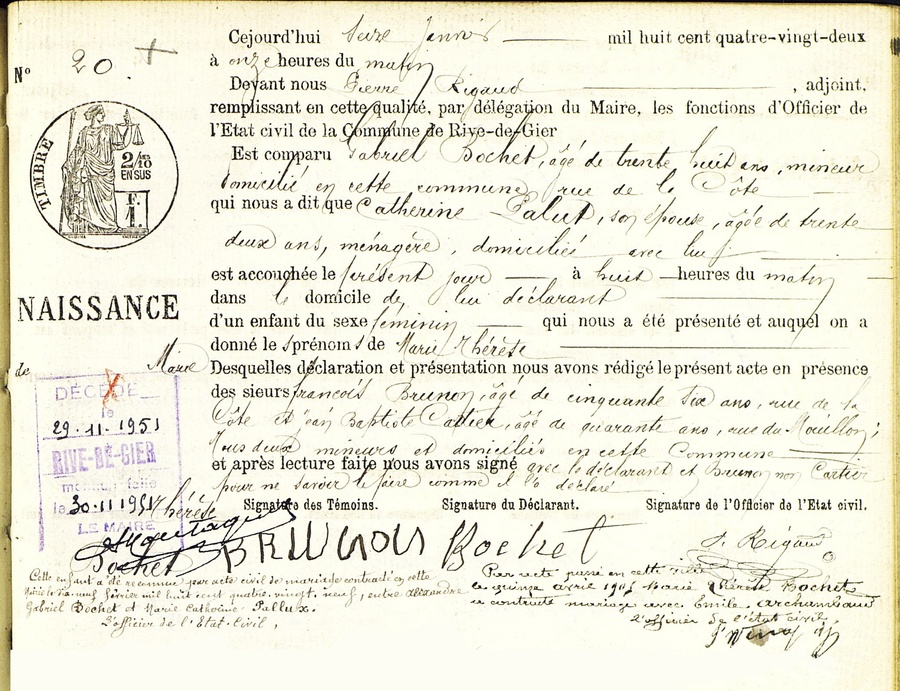 Cejourd'hui Seize Janvier mil huit cent quatre-vingt-deux
à onze heures du matin
Devant nous Pierre Rigaud, adjoint,
remplissant en cette qualité, par délégation du Maire, les fonctions d'Officier de
l'Etat civil de la Commune de Rive-de-Gier
Est comparu Gabriel Bochet, âgé de trente huit ans, mineur
domicilié en cette commune rue de la Côte
qui nous a dit que Catherine Palut, son épouse, âgée de trente
deux ans, ménagère, domiciliée avec lui
est accouchée le présent jour à huit heures du matin
dans le domicile de lui déclarant
d'un enfant du sexe féminin qui nous a été présenté et auquel on a
donné le s prénoms de Marie Thérèse
Desquelles déclaration et présentation nous avons rédigé le présent acte en présence
des sieurs françois Brunon, âgé de cinquante six ans, rue de la
Côte et jean Baptiste Cartier, âgé de quarante ans, rue du Mouillon;
Tous deux mineurs et domiciliés en cette Commune
et après lecture faite nous avons signé avec le déclarant et Brunon non Cartier
pour ne savoir le faire comme il l'a déclaré
Signature des Témoins. Signature du Déclarant. Signature de l'Officier de l'Etat civil.
BRUNON Bochet P. Rigaud
N° 20.
TIMBRE
2/10 EN SUS
F. 1.
NAISSANCE
de Marie
Thérèse
Bochet
DÉCÉDÉE
le
29.11.1951
RIVE-DE-GIER
mention faite
le 30.11.1951
LE MAIRE
Cette enfant a été reconnue par acte civil de mariage contracté en cette
Mairie le neuf février mil huit cent quatre-vingt-neuf, entre Alexandre
Gabriel Bochet et Marie Catherine Pallux.
L'officier de l'Etat-Civil,
Par acte passé en cette
le quinze avril Marie Thérèse Bochet
a contracté mariage avec Emile Archambaud
L'officier de l'état civil,